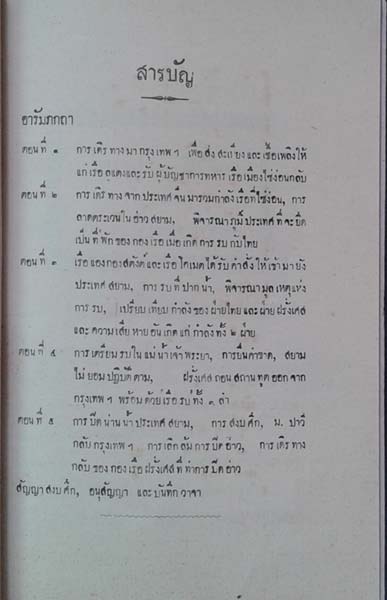 สารบัญ
อารัมภกถา
ตอนที่ ๑ การเดิรทางมากรุงเทพฯ เพื่อส่งสะเบียงและเชื้อเพลิงให้
แก่เรือลูแตงและรับผู้บัญชาการทหารเรือเมืองไซ่ง่อนกลับ
ตอนที่ ๒ การเดิรทางจากประเทศจีนมารวมกำลังเรือที่ไซ่ง่อน, การ
ลาดตระเวนในอ่าวสยาม, พิจารณาภูมิประเทศที่จะยึด
เป็นที่พักของกองเรือเมื่อเกิดการรบกับไทย
ตอนที่ ๓ เรือแองกองสตังต์และเรือโคเมตได้รับคำสั่งให้เข้ามายัง
ประเทศสยาม, การรบที่ปากน้ำ, พิจารณามูลเหตุแห่ง
การรบ, เปรียบเทียบกำลังของฝ่ายไทยและฝ่ายฝรั่งเศส
และความเสียหายอันเกิดแก่กำลังทั้ง ๒ ฝ่าย
ตอนที่ ๔ การเตรียมรบในแม่น้ำเจ้าพระยา, การยื่นคำขาด, สยาม
ไม่ยอมปฏิบัติตาม, ฝรั่งเศสถอนสถานทูตออกจาก
กรุงเทพฯ พร้อมด้วยเรือรบทั้ง ๓ ลำ
ตอนที่ ๕ การปิดน่านน้ำประเทศสยาม, การสงบศึก, ม. ปาวี
กลับกรุงเทพฯ การเลิกล้มการปิดอ่าว, การเดิรทาง
กลับของกองเรือฝรั่งเศสที่ทำการปิดอ่าว
สัญญาสงบศึก, อนุสัญญา และบันทึกวาจา